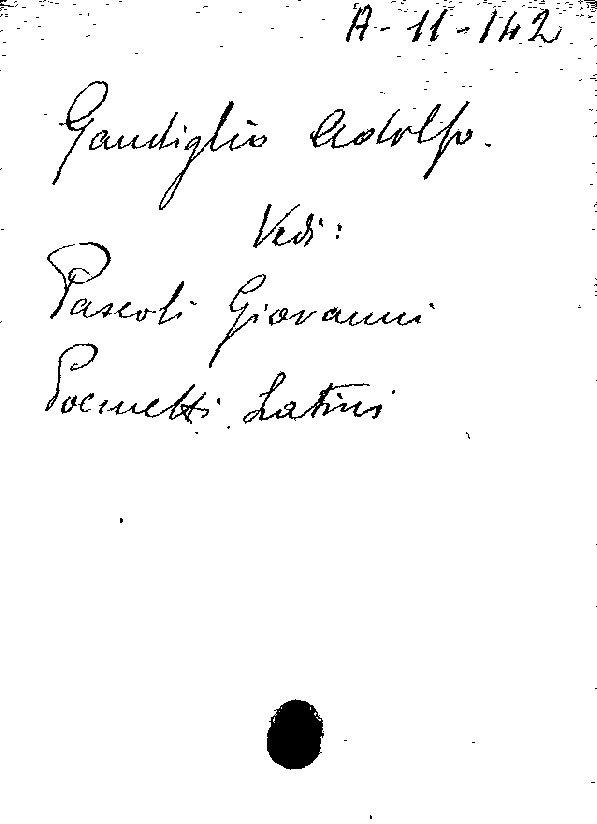 A-11-142
Gandiglio Adolfo.
Vedi:
Pascoli Giovanni
Poemetti Latini